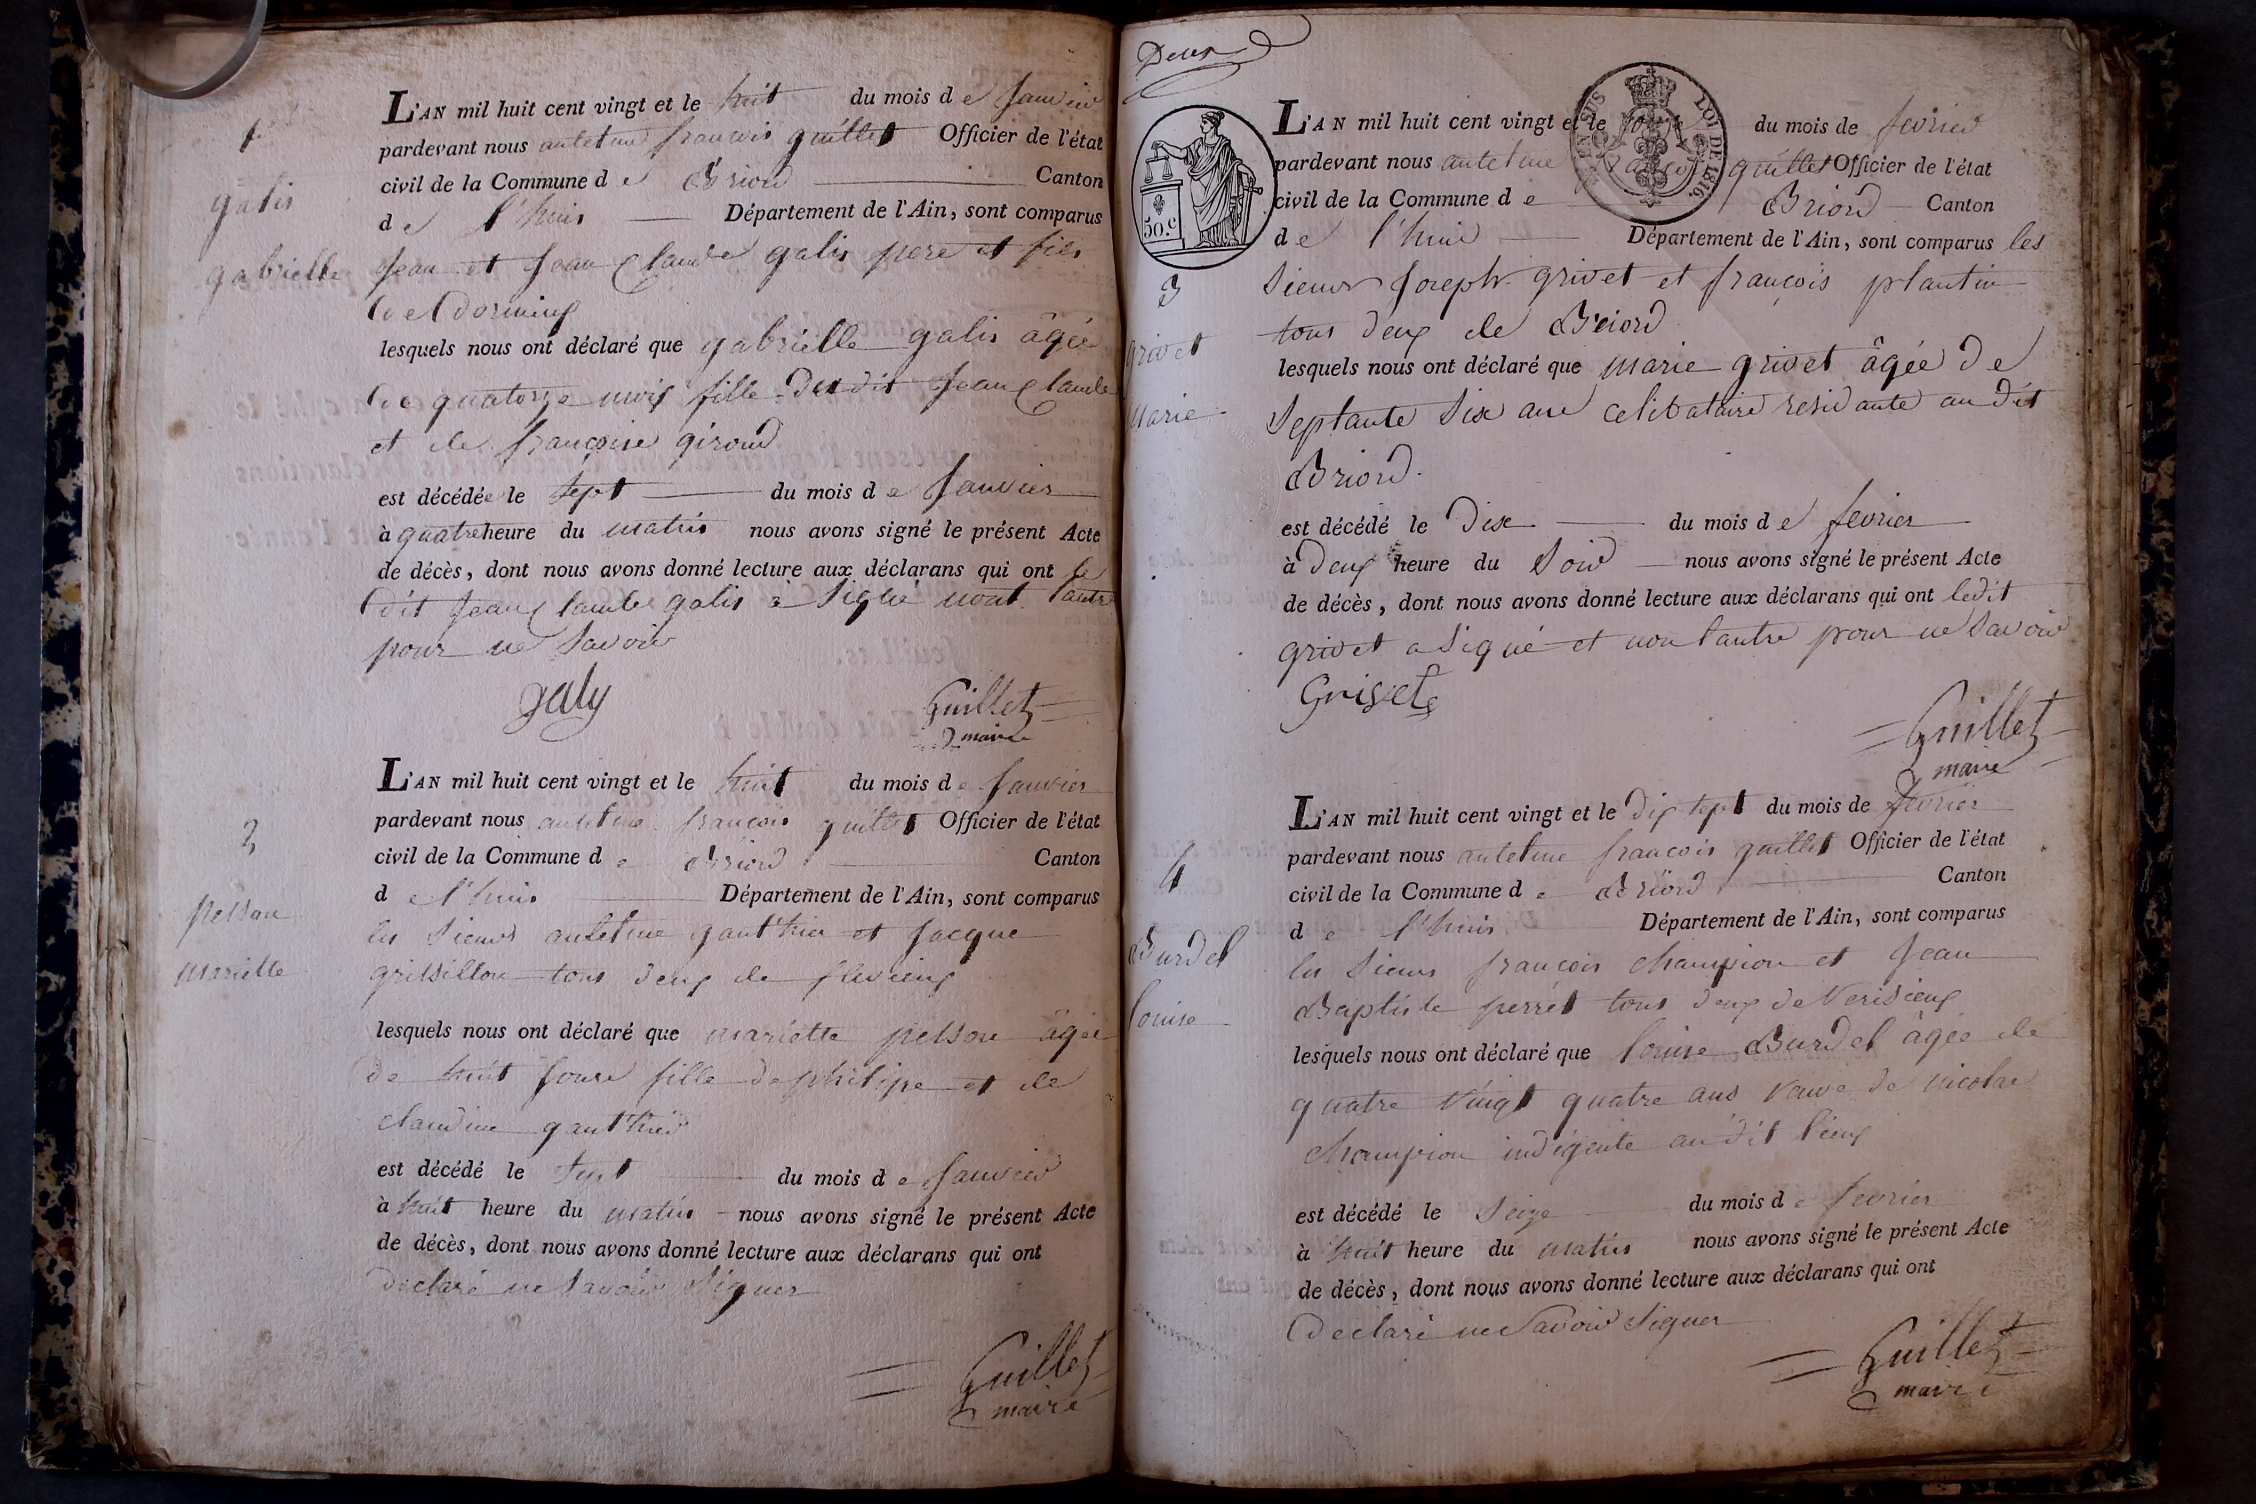 1
galis
gabrielle
L'AN mil huit cent vingt et le huit du mois de Janvier
pardevant nous antelme françois guillet Officier de l'état
civil de la Commune de Briord Canton
de l'huis Département de l'Ain, sont comparus
Jean et Jean Claude galis pere et fils
de Dornieux
lesquels nous ont déclaré que gabrielle galis âgée
de quatorze mois fille dudit Jean Claude
et de françoise giroud
est décédée le sept du mois de Janvier
à quatre heure du matin nous avons signé le présent Acte
de décès, dont nous avons donné lecture aux déclarans qui ont le
dit Jean Claude galis à signé non l'autre
pour ne savoir
galy
Guillet
maire
2
pelson
mariette
L'AN mil huit cent vingt et le huit du mois de Janvier
pardevant nous antelme françois guillet Officier de l'état
civil de la Commune de Briord Canton
de l'huis Département de l'Ain, sont comparus
les sieurs antelme gauthier et Jacque
grissillon tous deux de flevieux
lesquels nous ont déclaré que mariette pelson âgée
de huit Jours fille de philipe et de
claudine gauthier
est décédé le sept du mois de Janvier
à huit heure du matin nous avons signé le présent Acte
de décès, dont nous avons donné lecture aux déclarans qui ont
declaré ne savoir signer
Guillet
maire
Deux
50.c
EN SUS
LOI DE 1816.
3
grivet
marie
L'AN mil huit cent vingt et le du mois de fevrier
pardevant nous antelme françois guillet Officier de l'état
civil de la Commune de Briord Canton
de l'huis Département de l'Ain, sont comparus les
sieurs Joseph grivet et françois plantin
tous deux de Briord
lesquels nous ont déclaré que marie grivet âgée de
septante six ans celibataire residante au dit
Briord.
est décédé le dix du mois de fevrier
à deux heure du soir nous avons signé le présent Acte
de décès, dont nous avons donné lecture aux déclarans qui ont ledit
grivet a signé et non l'autre pour ne savoir
Guillet
maire
4
Burdel
louise
L'AN mil huit cent vingt et le dix sept du mois de fevrier
pardevant nous antelme françois guillet Officier de l'état
civil de la Commune de Briord Canton
de l'huis Département de l'Ain, sont comparus
les sieurs françois champion et Jean
Baptiste perret tous deux de Verisieux
lesquels nous ont déclaré que louise Burdel âgée de
quatre vingt quatre ans veuve de nicolas
champion indigente au dit lieux
est décédé le seize du mois de fevrier
à huit heure du matin nous avons signé le présent Acte
de décès, dont nous avons donné lecture aux déclarans qui ont
declaré ne savoir signer
Guillet
maire